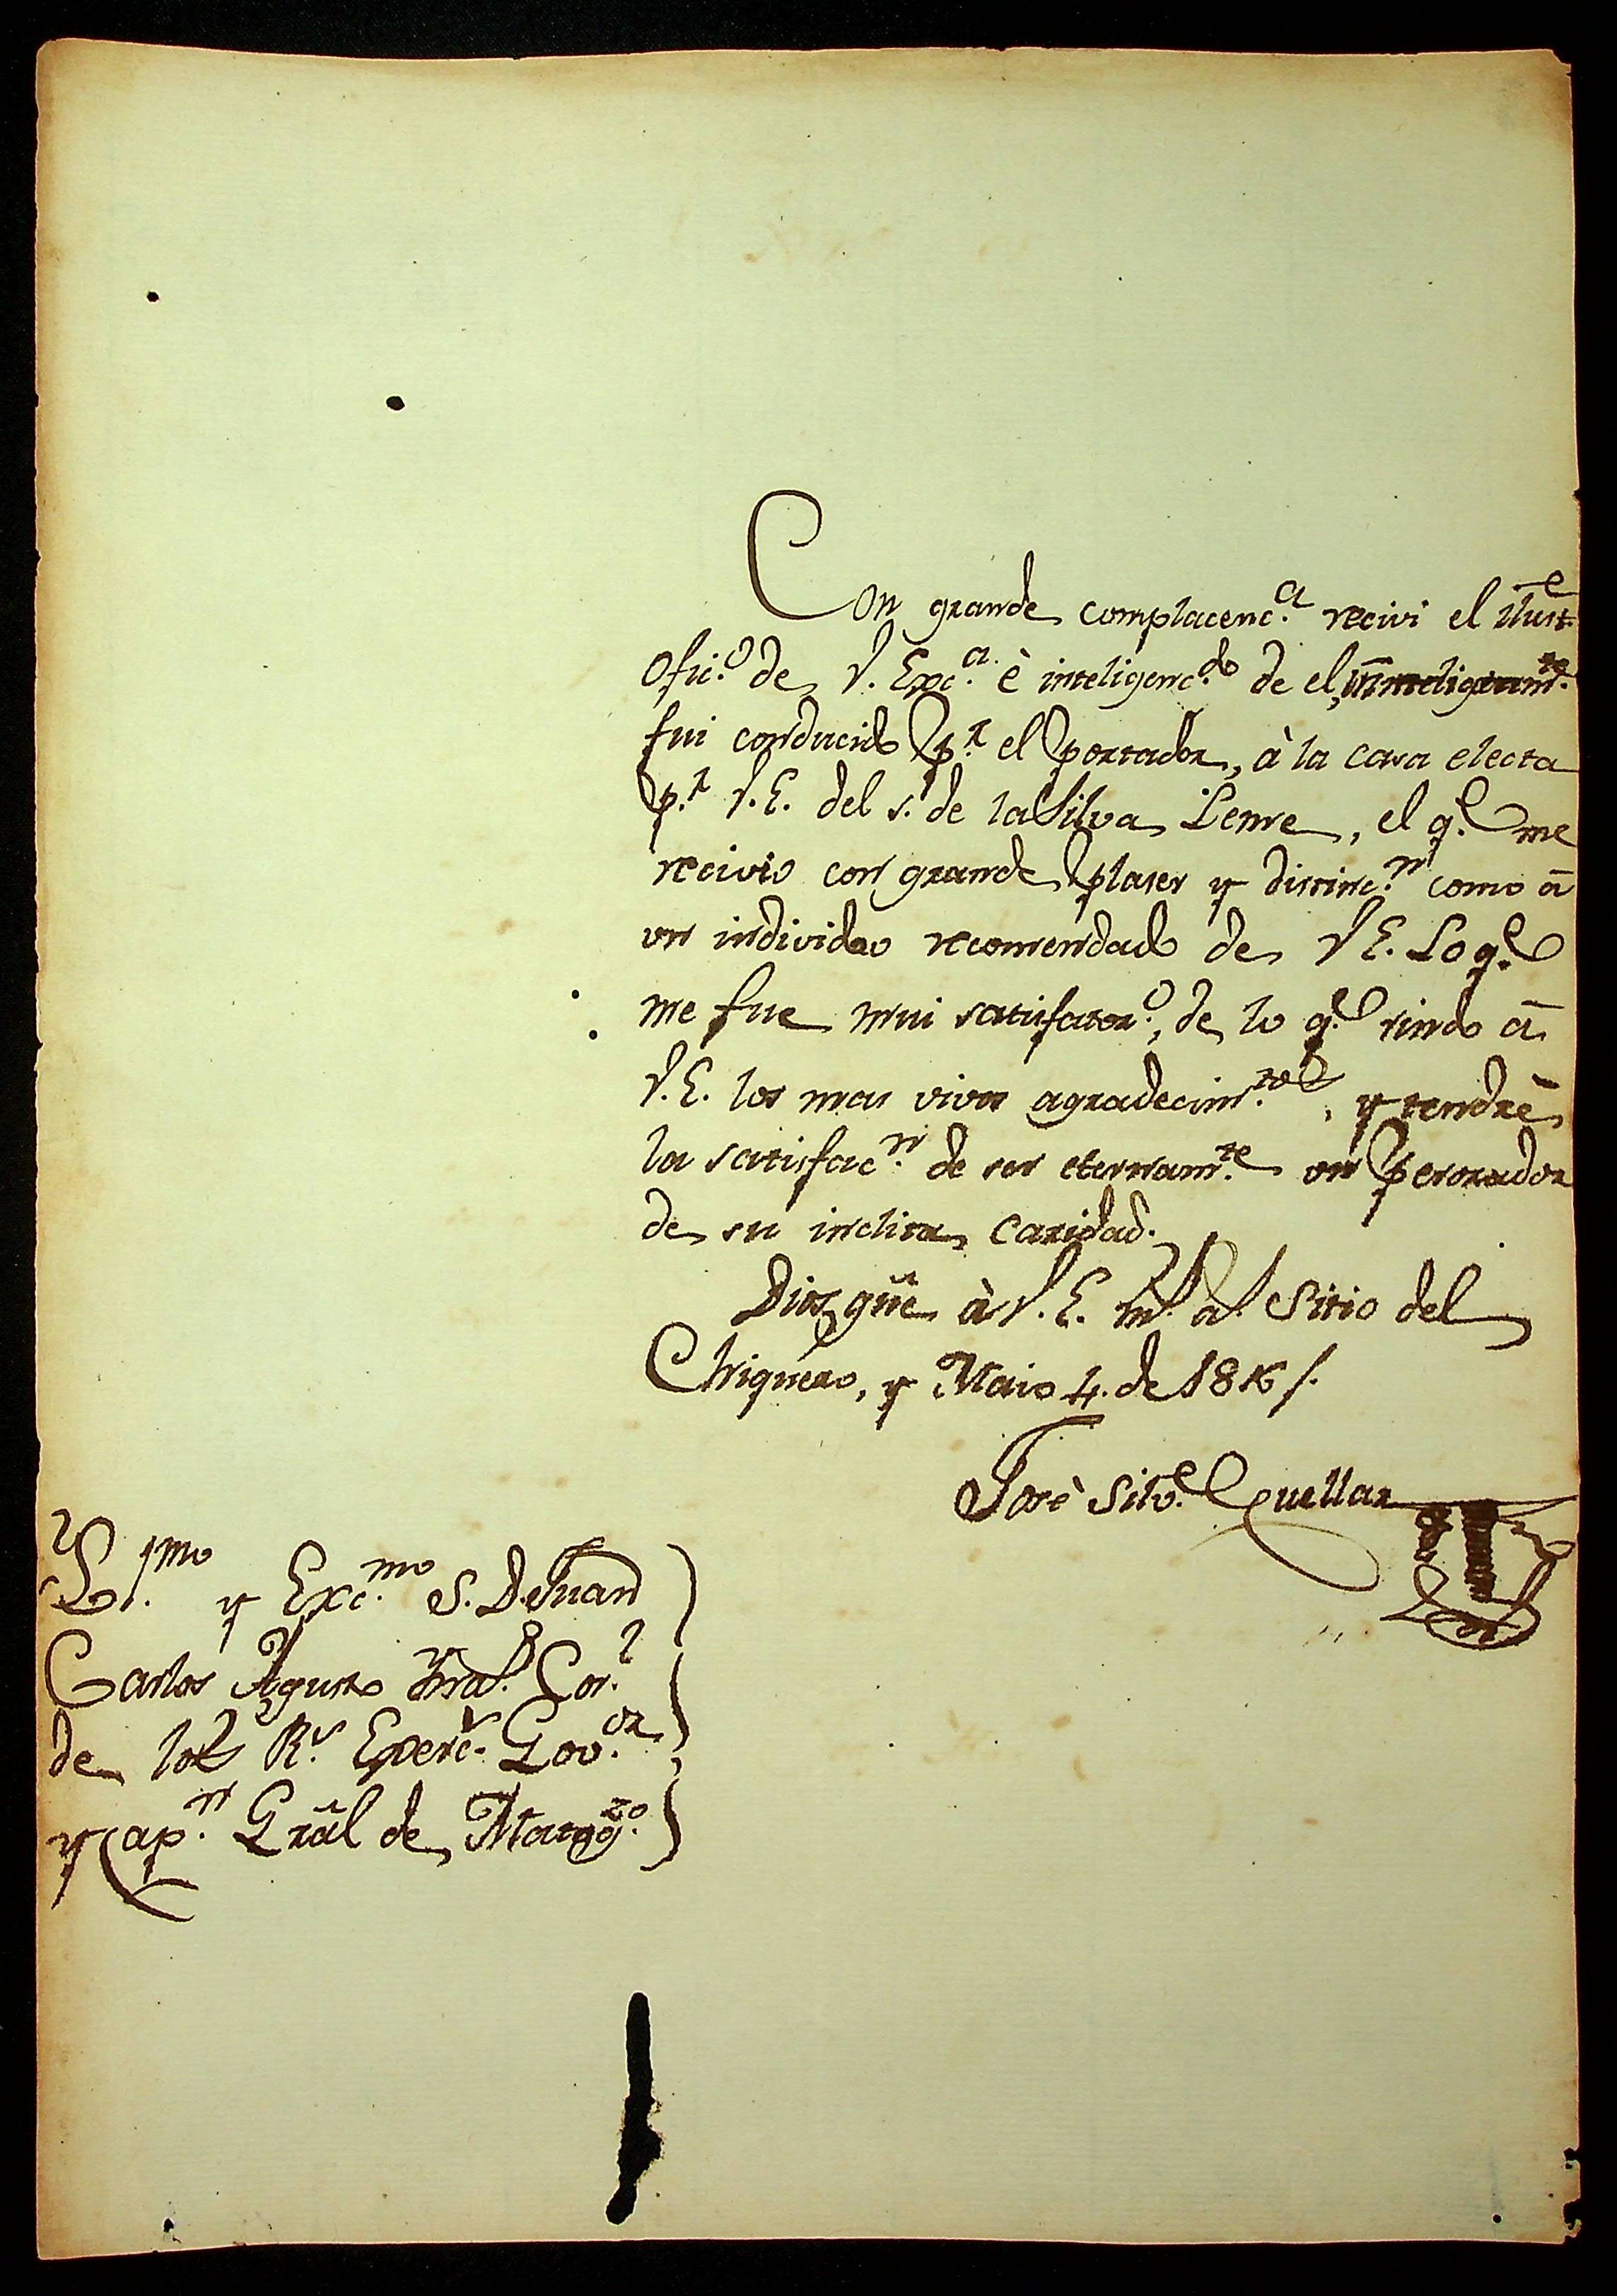 Con grande complacenc.ª recivi el ilust.e
Ofic.º de V. Exc.ª è inteligenc.do de el,
fui conducido p.r el portador, à la casa electa
p.r V.E. del s. de la Silva Leme, el q.e me
recivio con grande plaser y distinc.n como ā
un individuo recomendado de V E. Lo q.e
me fue mui satisfator.º, de lo q.e rindo ā
V.E. los mas vivos agradecim.tos, y tendrè
la satisfac.n de ser eternam.te un perorador
de su inclita caridad.
Dios güe à V. E. m.s a.s Sitio del
Chiquero, y Maio 4. de 1816/.
Josè Silv.e Cuellar
y Exc.mo S. D. Juan
Carlos Agusto
de los R.s Exerc.s Gov.or
y Cap.n Gral de Matog.zo